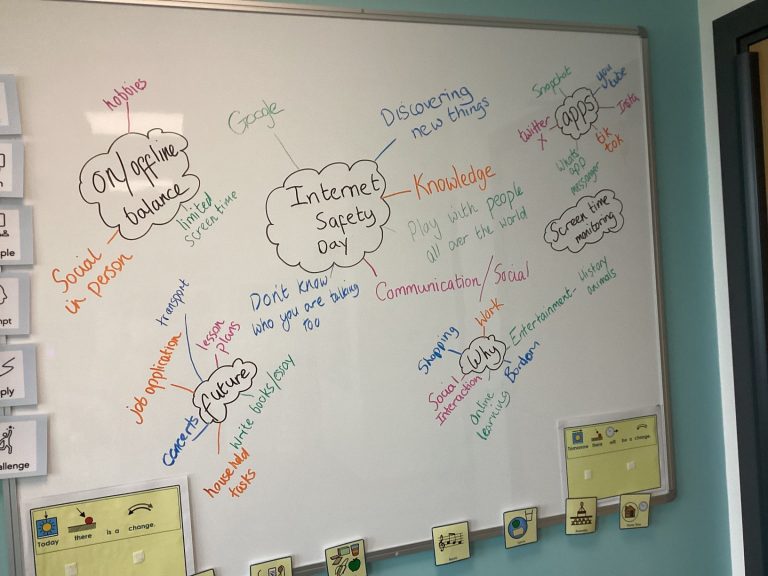 hobbies
on/offline
balance
limited
screen time
Social
in person
Google
Discovering
new things
Internet
Safety
Day
Knowledge
Play with people
all over the world
Communication/Social
Don't know
who you are talking
too
Snapchat
you
tube
apps
Insta
twitter
X
tik
tok
Whats
app
messanger
Screen time
monitoring
transport
lesson
plans
Job application
future
write books/essay
Concerts
household
tasks
Work
Shopping
Why
Entertainment - History
animals
Bordom
Social
Interaction
Online
learning
Today
there
is a
change.
Tomorrow
there
will
be a
change.
ple
mpt
ply
allenge